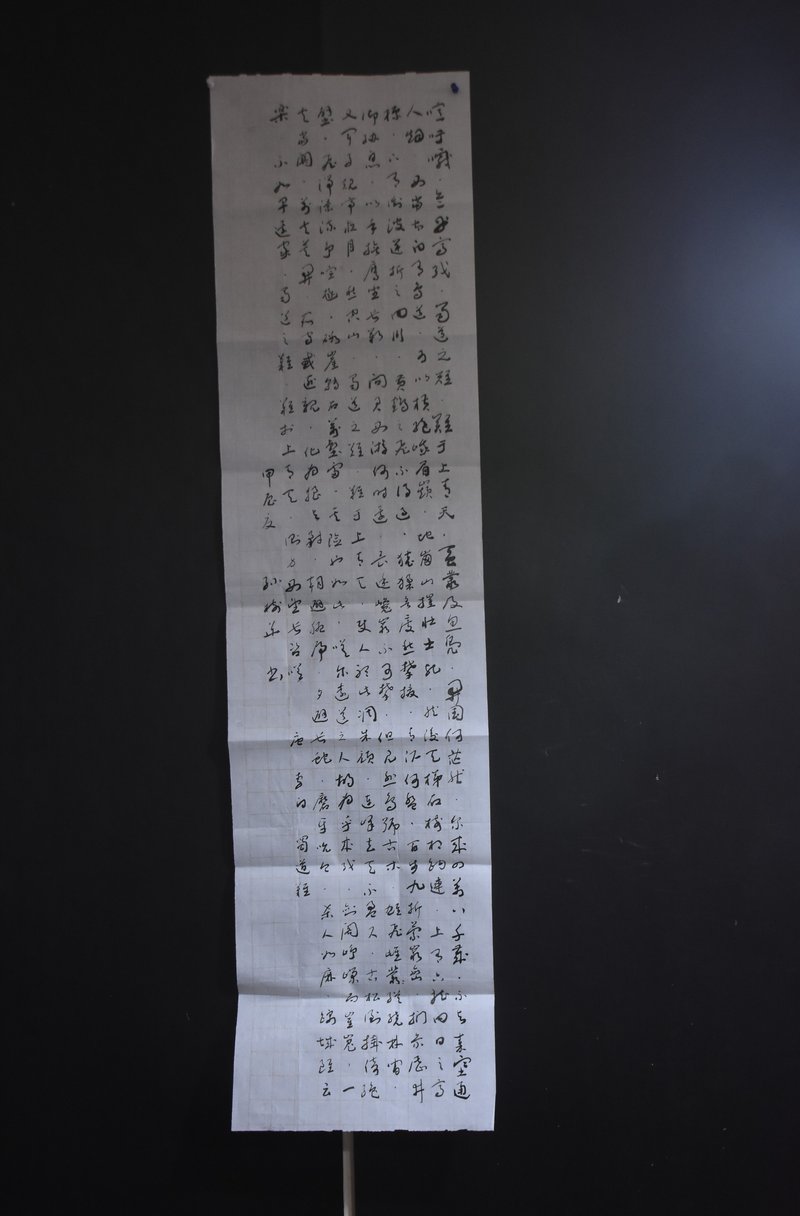 噫吁嚱。危乎高哉。蜀道之難。難于上青天。蚕叢及魚鳧。開國何茫然。尔來四萬八千歲。不与秦塞通
人烟。西當太白有鳥道。可以橫絕峨眉巔。地崩山摧壯士死。然後天梯石棧相鉤連。上有六龍回日之高
標。下有衝波逆折之回川。黃鶴之飛不得過。猿猱欲度愁攀援。青泥何盤。百步九折縈巖巒。捫參歷井
仰脅息。以手撫膺坐長歎。問君西游何時還。畏途巉巖不可攀。但見悲鳥號古木。雄飛雌從繞林間。
又聞子規啼夜月。愁空山。蜀道之難。難于上青天。使人聽此凋朱顏。連峰去天不盈尺。古松倒掛倚絕
壁。飛湍瀑流爭喧豗。砯崖轉石萬壑雷。其險也如此。嗟尔遠道之人胡為乎來哉。劍閣崢嶸而崔嵬。一
夫當關。萬夫莫開。所守或匪親。化為狼与豺。朝避猛虎。夕避長蛇。磨牙吮血。殺人如麻。錦城雖云
樂。不如早還家。蜀道之難。難於上青天。側身西望長咨嗟 唐 李白 蜀道難
甲辰夏 孫 華 書